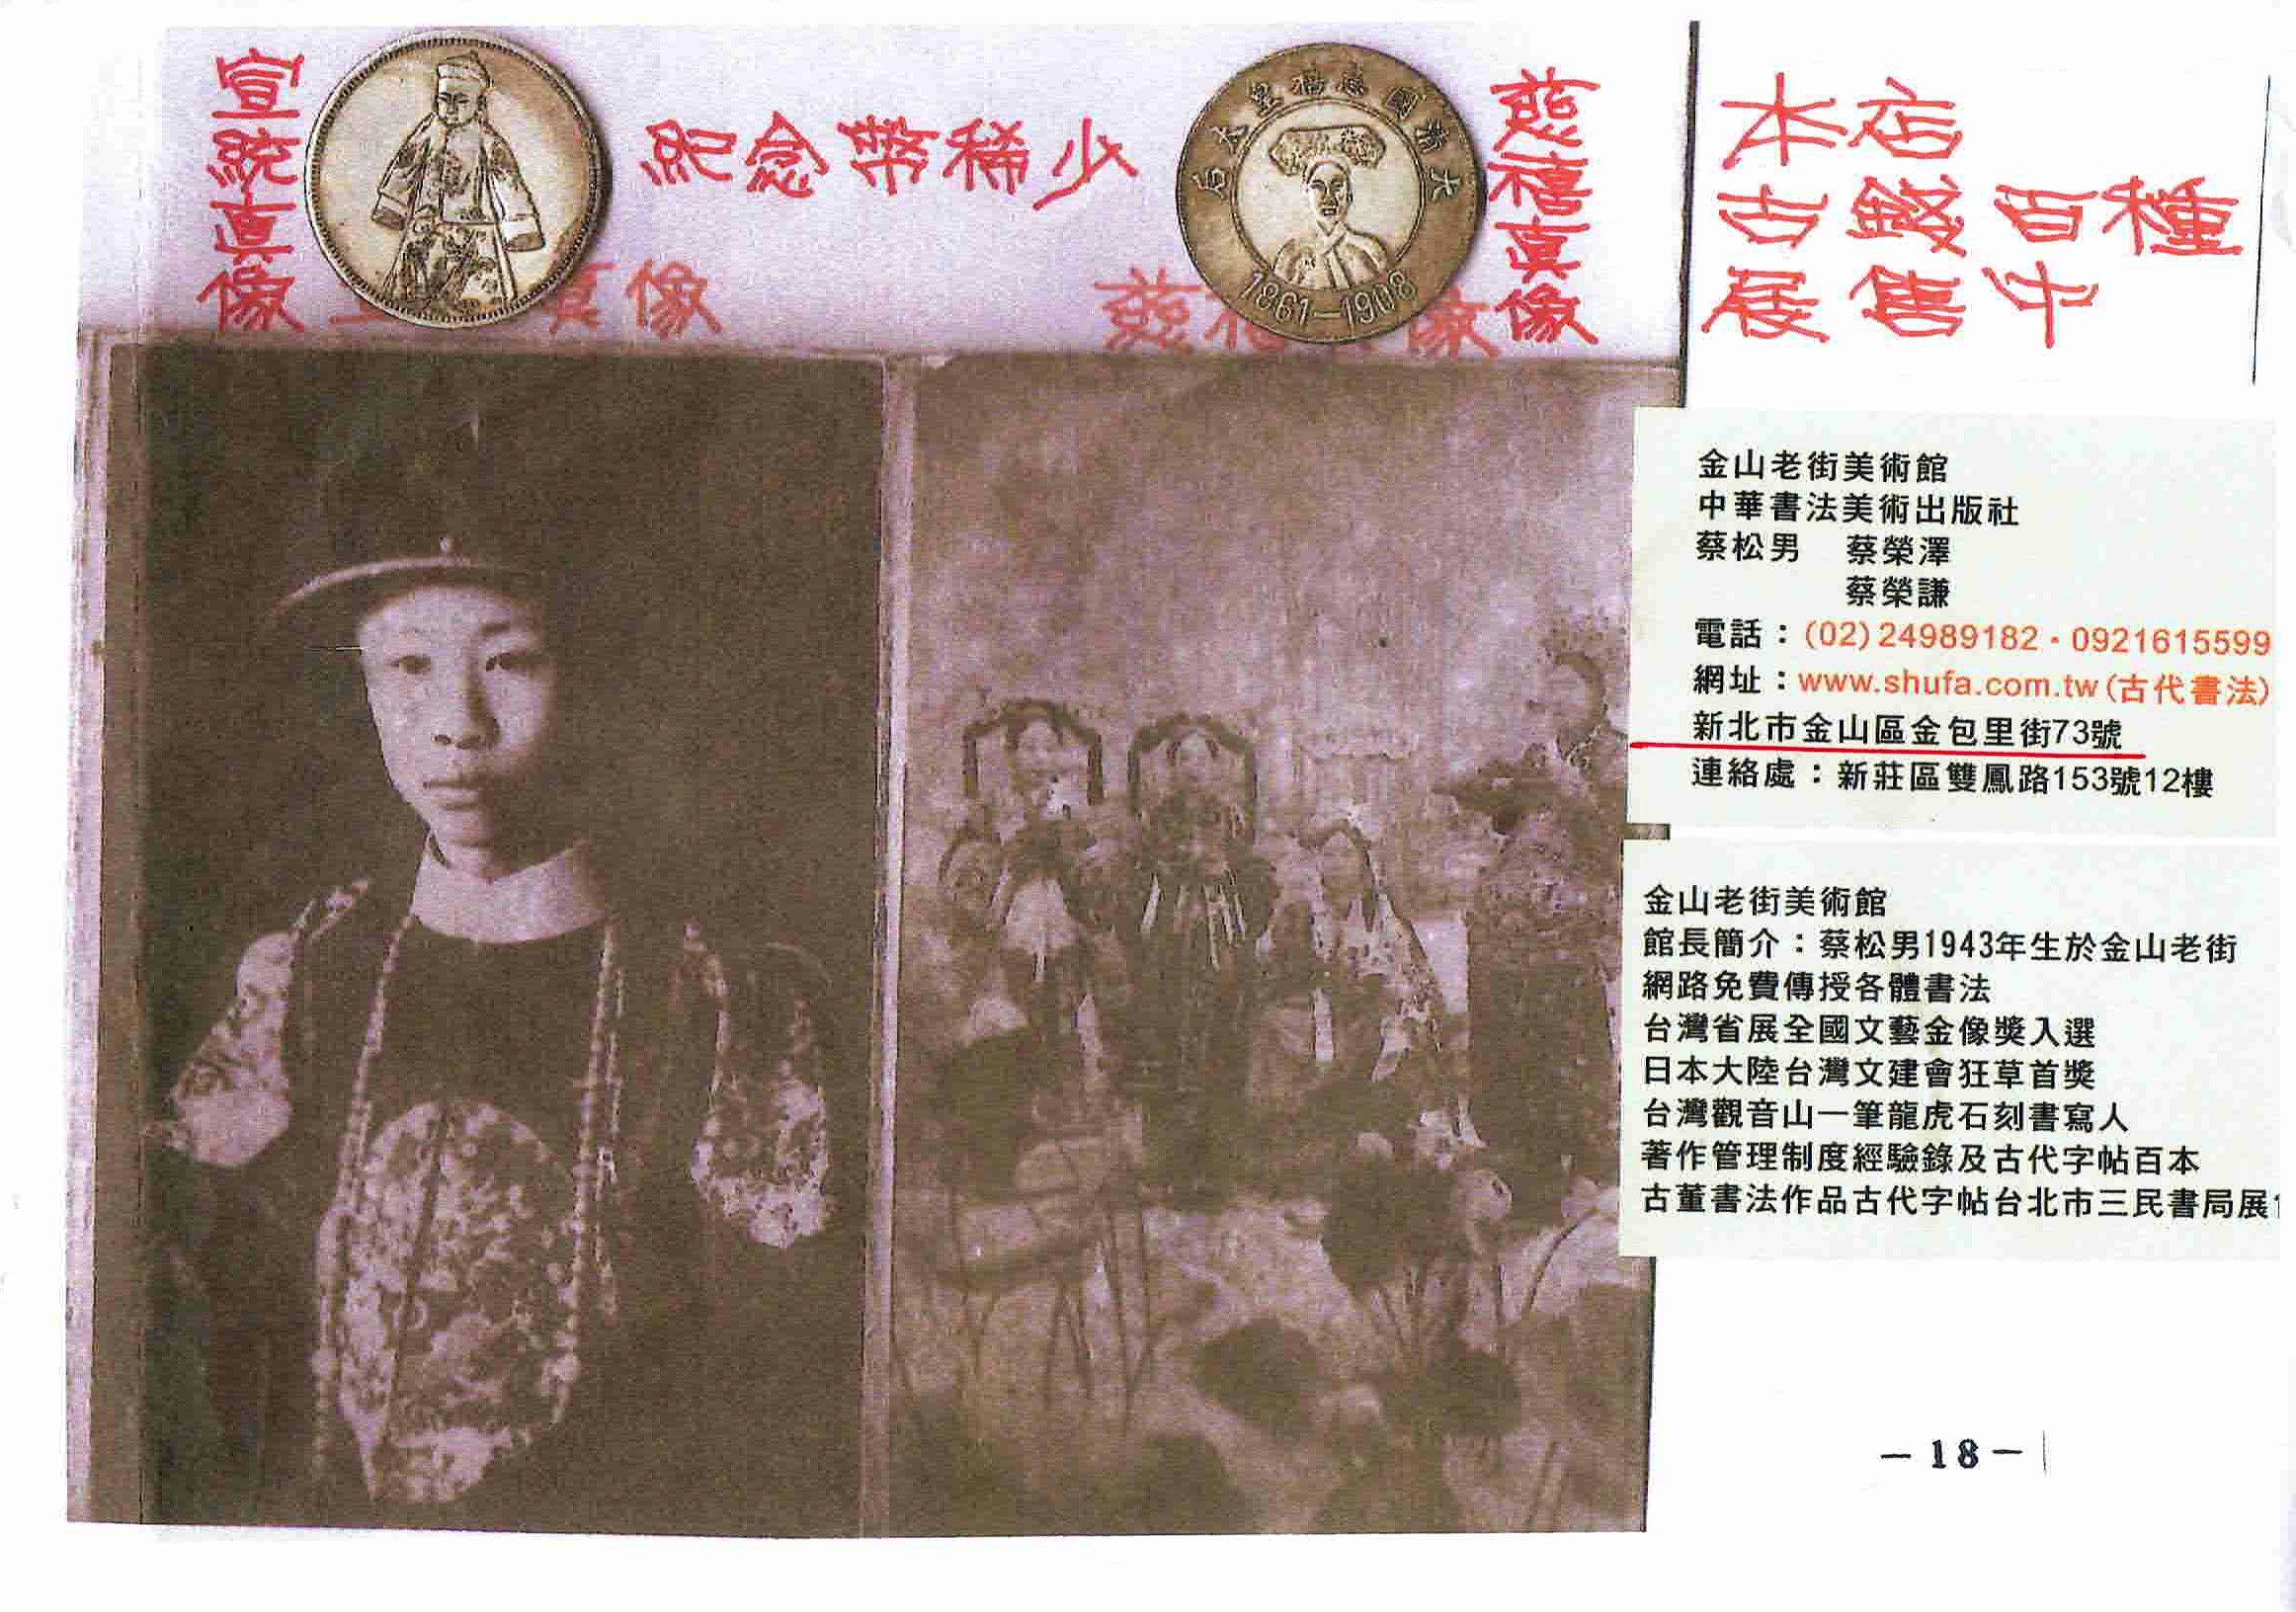 宣統真像
紀念幣稀少
慈禧真像
1861—1908
真像
慈禧
像
本店
古錢百種
展售中
金山老街美術館
中華書法美術出版社
蔡松男 蔡榮澤
蔡榮謙
電話：(02)24989182·0921615599
網址：www.shufa.com.tw(古代書法)
新北市金山區金包里街73號
連絡處：新莊區雙鳳路153號12樓
金山老街美術館
館長簡介：蔡松男1943年生於金山老街
網路免費傳授各體書法
台灣省展全國文藝金像獎入選
日本大陸台灣文建會狂草首獎
台灣觀音山一筆龍虎石刻書寫人
著作管理制度經驗錄及古代字帖百本
古董書法作品古代字帖台北市三民書局展
－18－